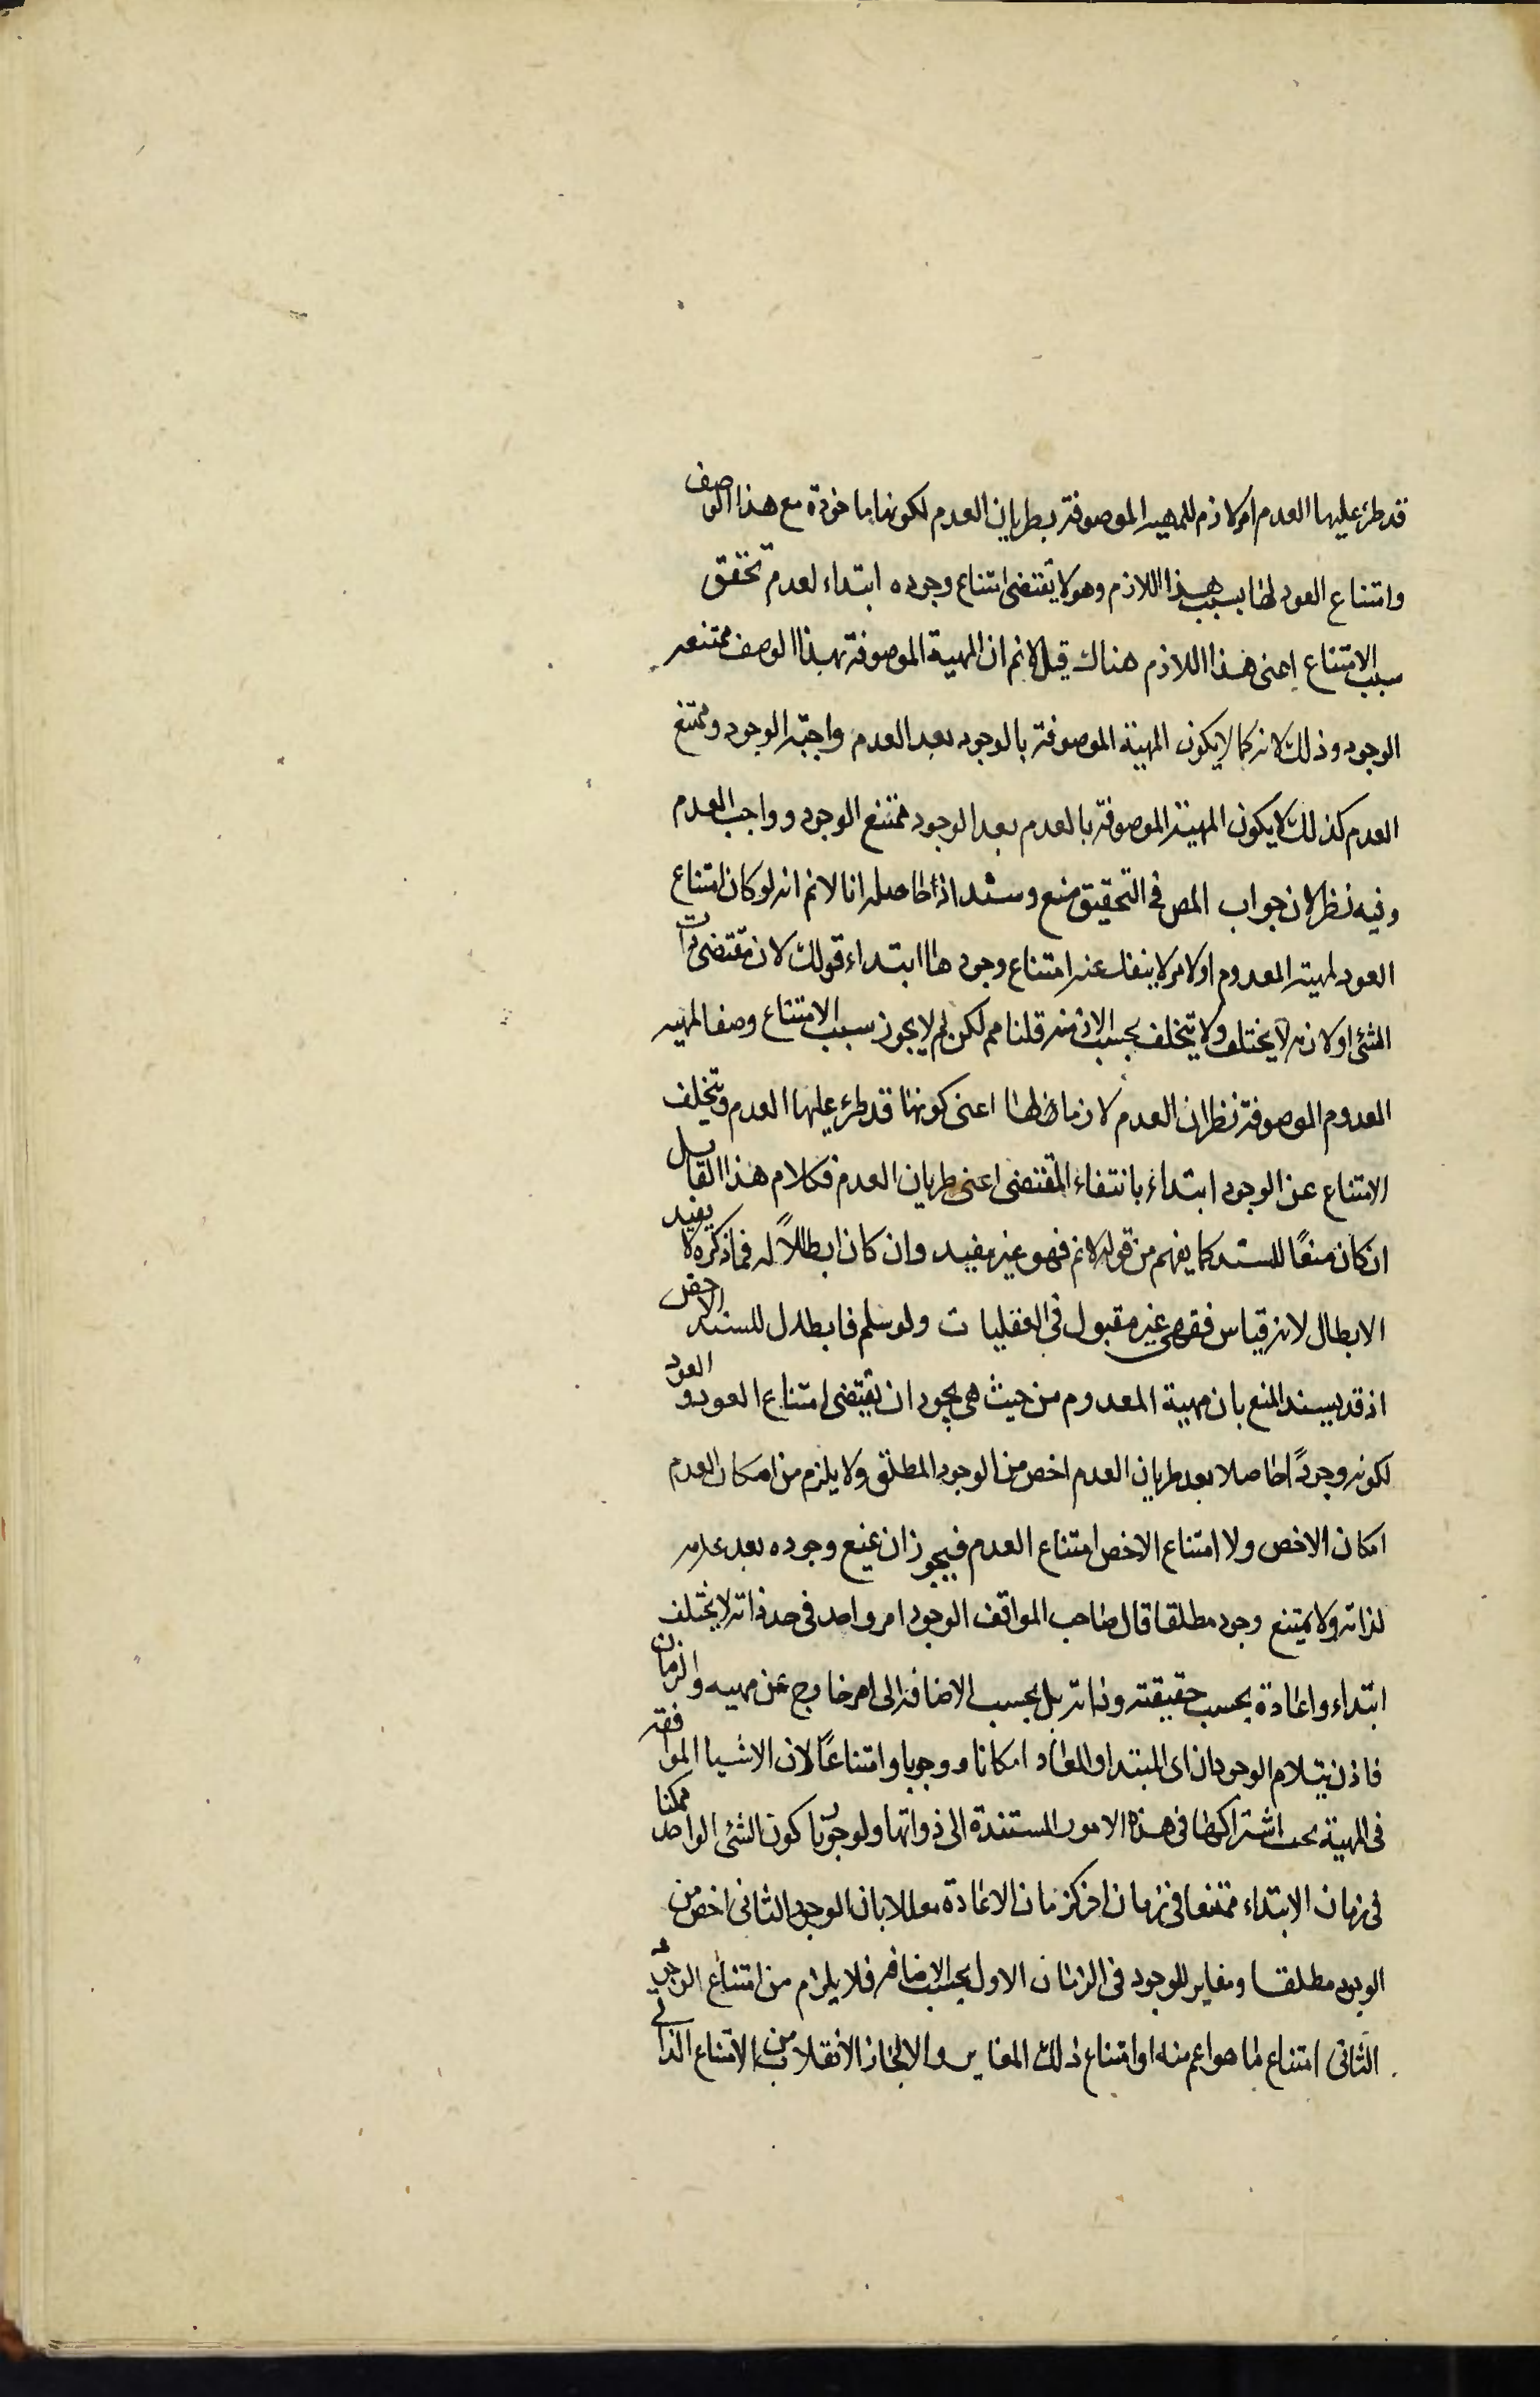 قد طرء عليها العدم امر لازم للمهية الموصوفة بطريان العدم لكونها ماخوذة مع هذا الوصف
وامتناع العود لها بسبب هذا اللازم وهو لا يقتضى امتناع وجوده ابتداء لعدم تحقق
سبب الامتناع اعنى هذا اللازم هناك قيل لانم ان المهية الموصوفة بهذا الوصف ممتنعه
الوجود وذلك لانه كما لا يكون المهية الموصوفة بالوجود بعد العدم واجبة الوجود وممتنع
العدم كذلك لا يكون المهية الموصوفة بالعدم بعد الوجود ممتنع الوجود وواجب العدم
وفيه نظر لان جواب المص فى التحقيق منع وسند اذ حاصله انا لانم انه لو كان امتناع
العود لمهية المعدوم او لامر لا ينفك عنه امتناع وجودها ابتداء قولك لان مقتضى ذات
الشئ او لازمه لا يختلف ولا يتخلف بحسب الازمنه قلنا مم لكن لم لا يجوز سبب الامتناع وصف المهيه
المعدوم الموصوفة بطريان العدم لازما لها اعنى كونها قد طرء عليها العدم وتخلف
الامتناع عن الوجود ابتداء بانتفاء المقتضى اعنى طريان العدم فكلام هذا القايل
ان كان منعًا للسند كما يفهم من قوله لانم فهو غير مفيد وان كان ابطالاً له فما ذكره لا يفيد
الابطال لانه قياس فقهى غير مقبول فى العقليات ولو سلم فابطال للسند الاخص
اذ قد يسند المنع بان مهية المعدوم من حيث هى يجوز ان يقتضى امتناع العود والعود
لكونه وجودًا حاصلا بعد طريان العدم اخص من الوجود المطلق ولا يلزم من امكان العدم
امكان الاخص ولا امتناع الاخص امتناع العدم فيجوز ان يمنع وجوده بعد عدمه
لذاته ولا يمتنع وجود مطلقا قال صاحب المواقف الوجود امر واحد فى حد ذاته لا يختلف
ابتداء واعادة بحسب حقيقته وذاته بل بحسب الاضافة الى امر خارج عن مهيه والزمان
فاذن يتلازم الوجودان اى المبتداء والمعاد امكانا ووجوبا وامتناعًا لان الاشياء الموافقة
فى المهية يجب اشتراكها فى هذه الامور المستندة الى ذواتها ولو جوزنا كون الشئ الواحد ممكنا
فى زمان الابتداء ممتنعا فى زمان اخر كزمان الاعادة معللا بان الوجود الثانى اخص من
الوجود مطلقا ومغاير للوجود فى الزمان الاول بحسب الاضافه فلا يلزم من امتناع الوجود
الثانى امتناع ما هو اعم منه او امتناع ذلك المغاير والا لجاز الانقلاب من الامتناع الذاتى